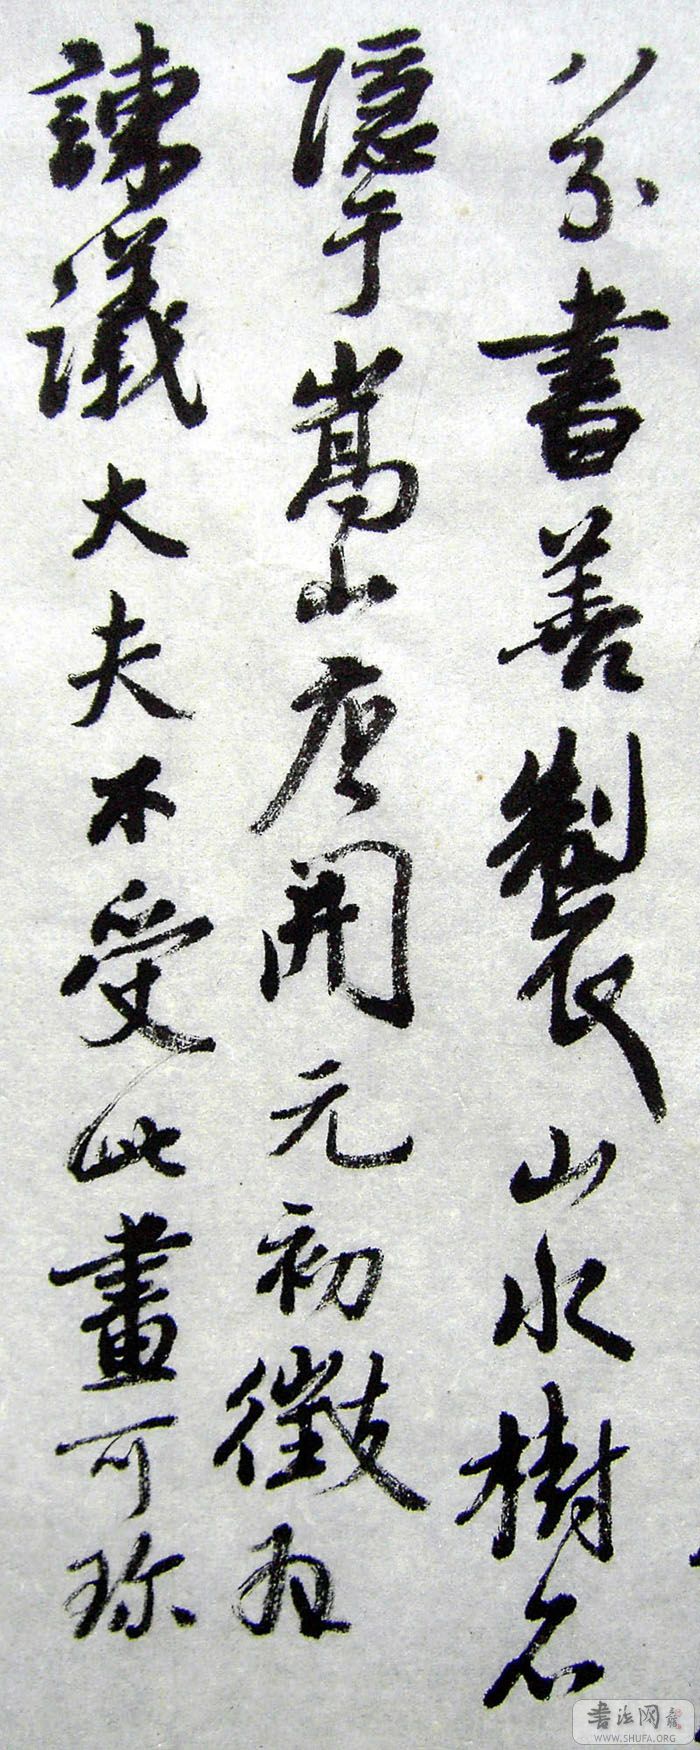 八分書善製山水樹石
隱于嵩山唐開元初徵為
諫議大夫不受此畫可珎
書法网
WWW.SHUFA.ORG